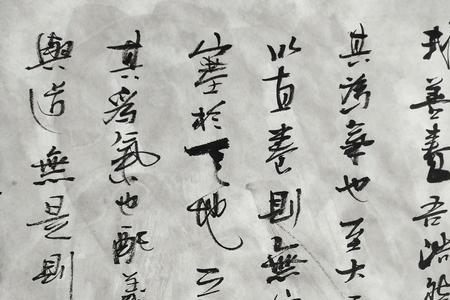 我善養吾浩然
其為氣也至大
以直養則無
塞於天地之
其為氣也配義
與道無是則